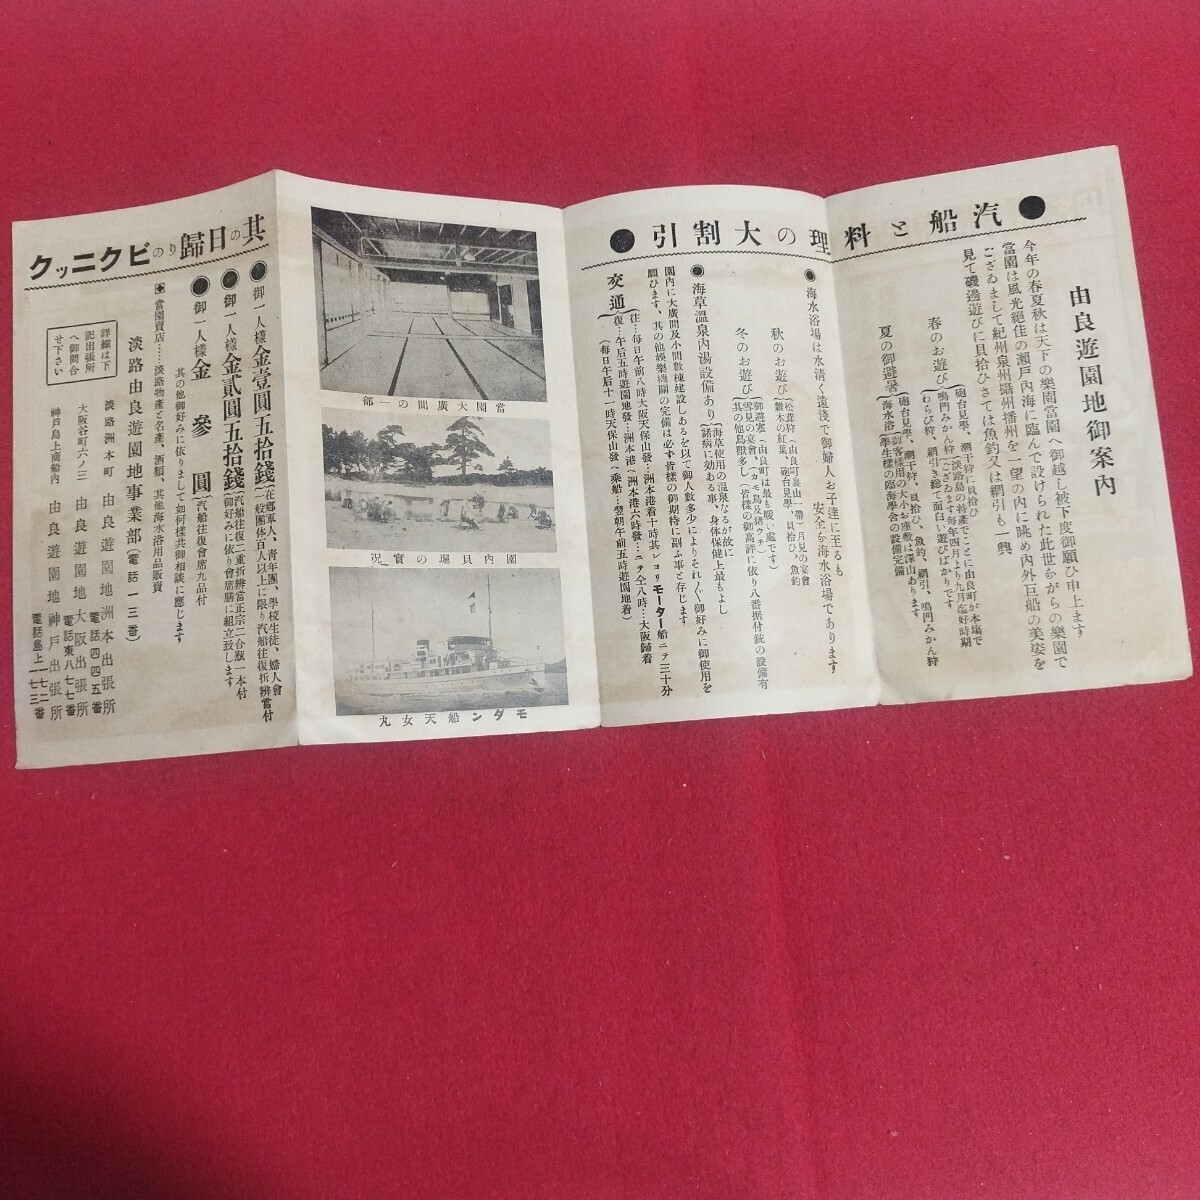 ●汽船と料理の大割引●
由良遊園地御案内
今年の春夏秋は天下の樂園當園へ御越し被下度御願ひ申上ます
當園は風光絕佳の瀨戶內海に臨んで設けられた此世ながらの樂園で
ございまして紀州泉州攝州播州を一望の內に眺め內外巨船の美姿を
見て磯邊遊びに貝拾ひさては魚釣又は網引も一興
春のお遊び
砲台見學、潮干狩に貝拾ひ
鳴門みかん狩(淡路島の特產でことに由良町が本場で
ございます每年四月より九月迄好時期
わらび狩、網引き總て面白い遊びばかりです
夏の御避暑
砲台見學、潮干狩、貝拾ひ、魚釣、網引、鳴門みかん狩
御客樣用の大小お座敷は澤山あります
海水浴(學生樣の臨海學舍の設備完備
●海水浴場は水淸く遠淺で御婦人お子達に至るも
安全な海水浴場であります
秋のお遊び
松茸狩(由良町裏山一帶)月見の宴會
雜木の紅葉、砲台見學、貝拾ひ、魚釣
冬のお遊び
御避寒(由良町は最も暖い處です)
雪見の宴會、(カモ鳥及猪うち)
其の他鳥獸多し(皆樣の御高評に依り八番据付銃の設備有
●海草溫泉內湯設備あり
海草使用の溫泉なるが故に
諸病に効ある事、身体保健上最もよし
園內に大廣間及小間數棟建設しあるを以て御人數多少によりそれ〲御好みに御使用を
願ひます、其の他娛樂機關の完備は必ず皆樣の御期待に副ふ事と存じます
交通
往…每日午前八時大阪天保山發…洲本港着十時其レヨリモーター船ニテ三十分
復…午后五時遊園地發…洲本港(洲本港六時發…ニテ仝八時…大阪歸着
(每日午后十一時天保山發へ乘船…翌朝午前五時遊園地着)
當園大廣間の一部
園內貝堀の實況
モダン船天女丸
其の日歸りのピクニック
●御一人樣金壹圓五拾錢
在鄕軍人、靑年團、學校生徒、婦人會
一般團体百人以上に限り汽船往復折辨當付
●御一人樣金貳圓五拾錢
汽船往復二重折辨當正宗二合瓶一本付
御好みに依り會席膳に組立致します
●御一人樣金參圓(汽船往復會席九品付
其の他御好みに依りまして如何樣共御相談に應じます
◆當園賣店……淡路物產と名產、酒類、其他海水浴用品販賣
淡路由良遊園地事業部(電話一三番)
詳細は下
記出張所
へ御問合
せ下さい
淡路洲本町 由良遊園地洲本出張所
電話四四五番
大阪谷町六ノ三 由良遊園地大阪出張所
電話東八七七番
神戶島上商船內 由良遊園地神戶出張所
電話島上一七二番
一七三番